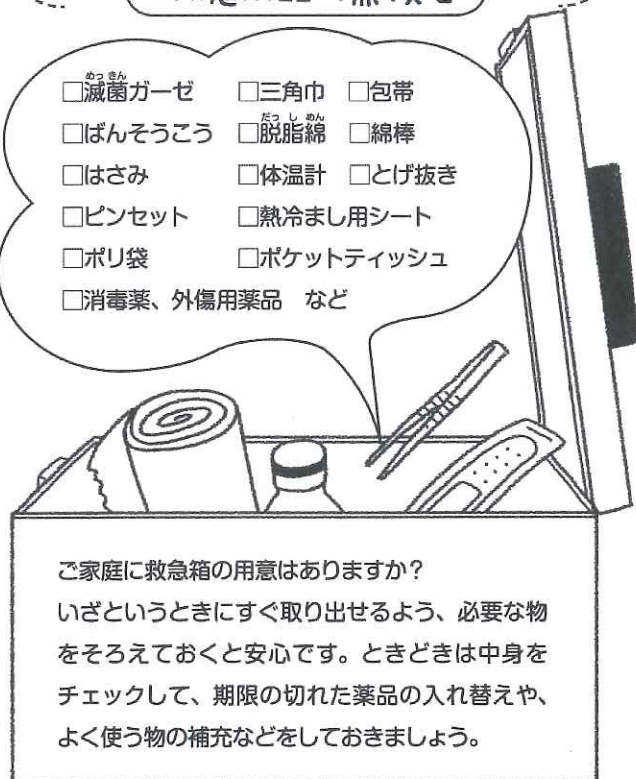 □滅菌ガーゼ □三角巾 □包帯
□ばんそうこう □脱脂綿 □綿棒
□はさみ □体温計 □とげ抜き
□ピンセット □熱冷まし用シート
□ポリ袋 □ポケットティッシュ
□消毒薬、外傷用薬品 など
ご家庭に救急箱の用意はありますか?
いざというときにすぐ取り出せるよう、必要な物
をそろえておくと安心です。ときどきは中身を
チェックして、期限の切れた薬品の入れ替えや、
よく使う物の補充などをしておきましょう。